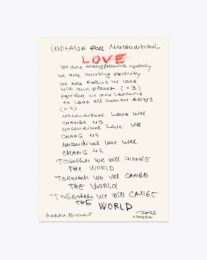 INVITATION FOR UNCONDITIONAL
LOVE
we are transforming
we are inviting
we are
with our planet (x3)
together we are learning
to love all human beings
(x3)
unconditional love will
change us
unconditional love will
chang us
unconditional love will
chang us
TOGETHER WE WILL CHANGE
THE WORLD
TOGETHER WE WILL CANGE
THE WORLD
TOGETHER WE WILL CANGE
THE WORLD